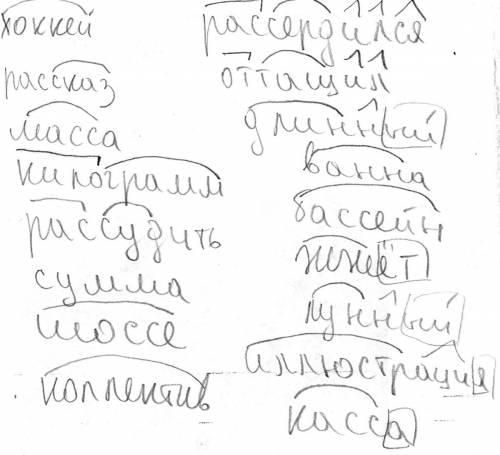 хоккей
рассказ
масса
килограмм
рассудить
сумма
шоссе
коллектив
рассердился
оттащил
длинный
ванна
бассейн
жжёт
лунный
иллюстрация
касса